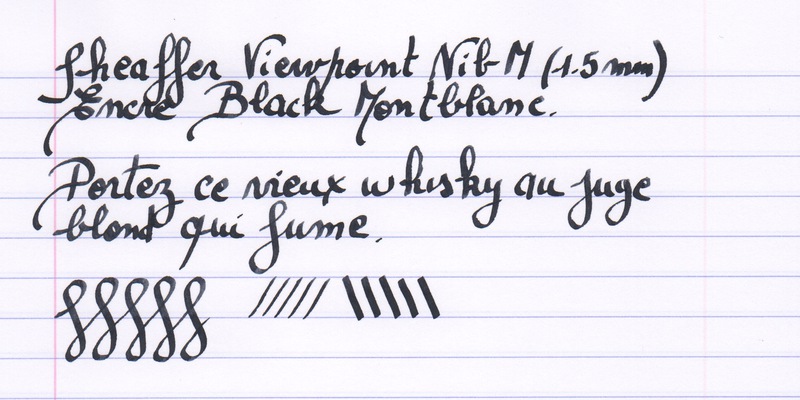 Sheaffer Viewpoint Nib M (1.5 mm)
Encre Black Montblanc.
Portez ce vieux whisky au juge
blond qui fume.